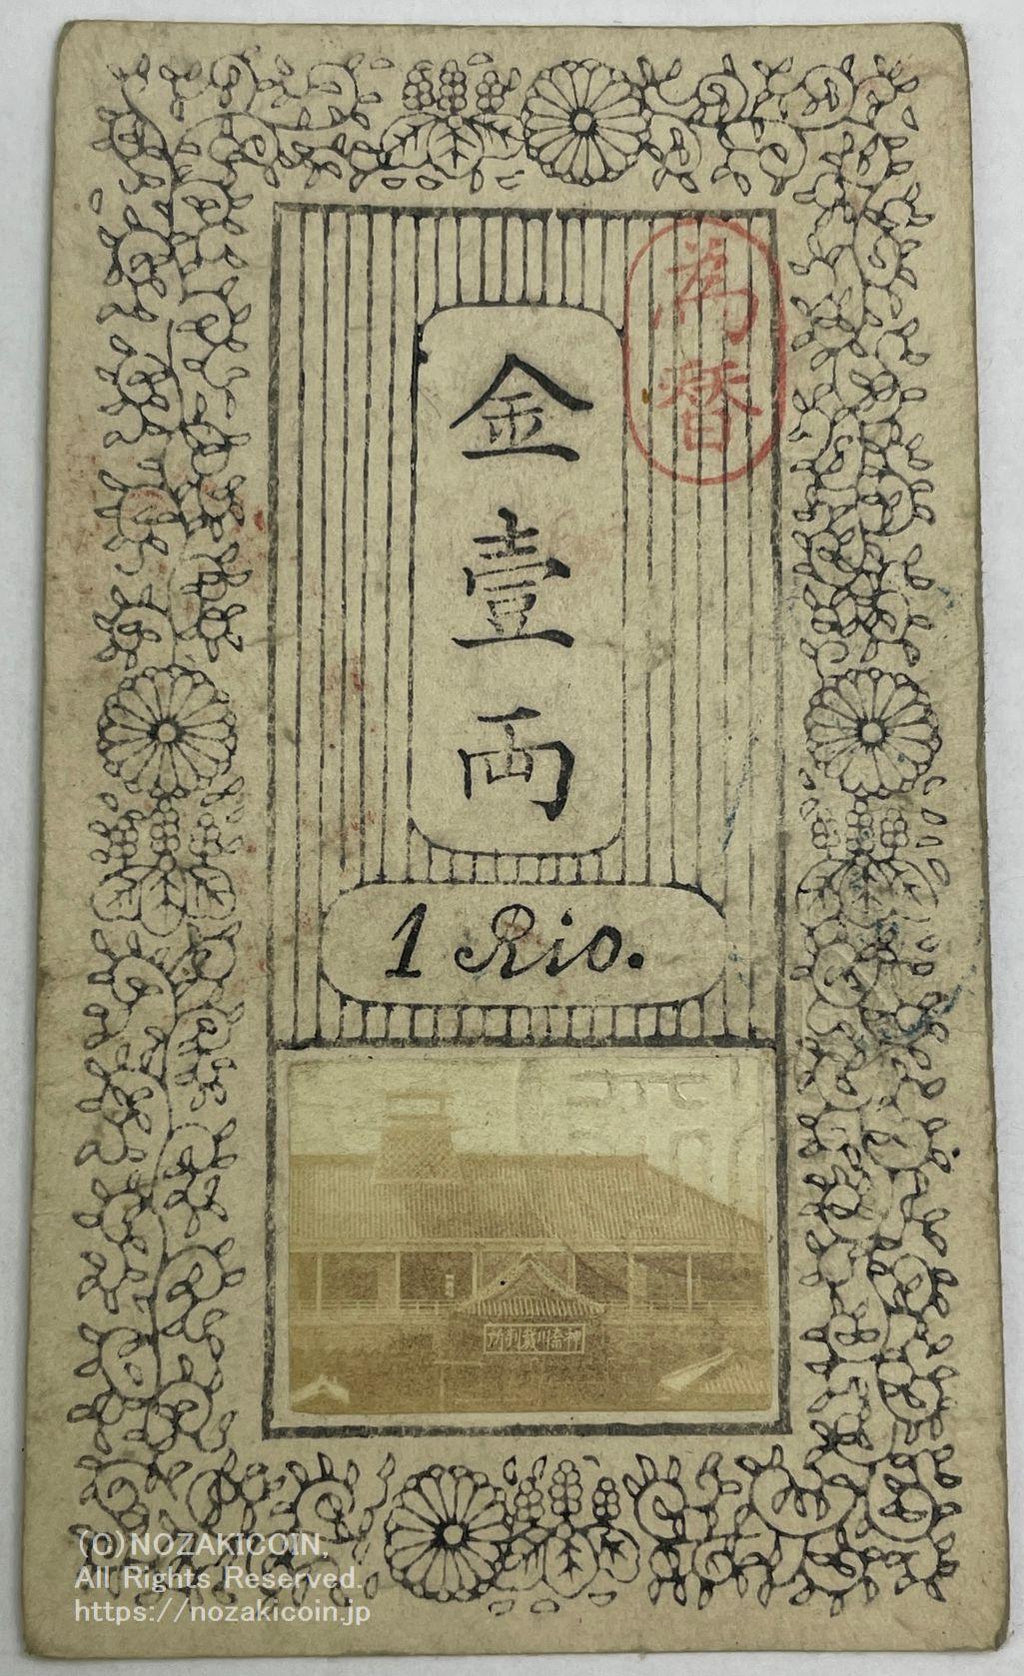 為替
金壹両
1 Rio.
神奈川裁判所
(C)NOZAKICOIN,
All Rights Reserved.
https://nozakicoin.jp